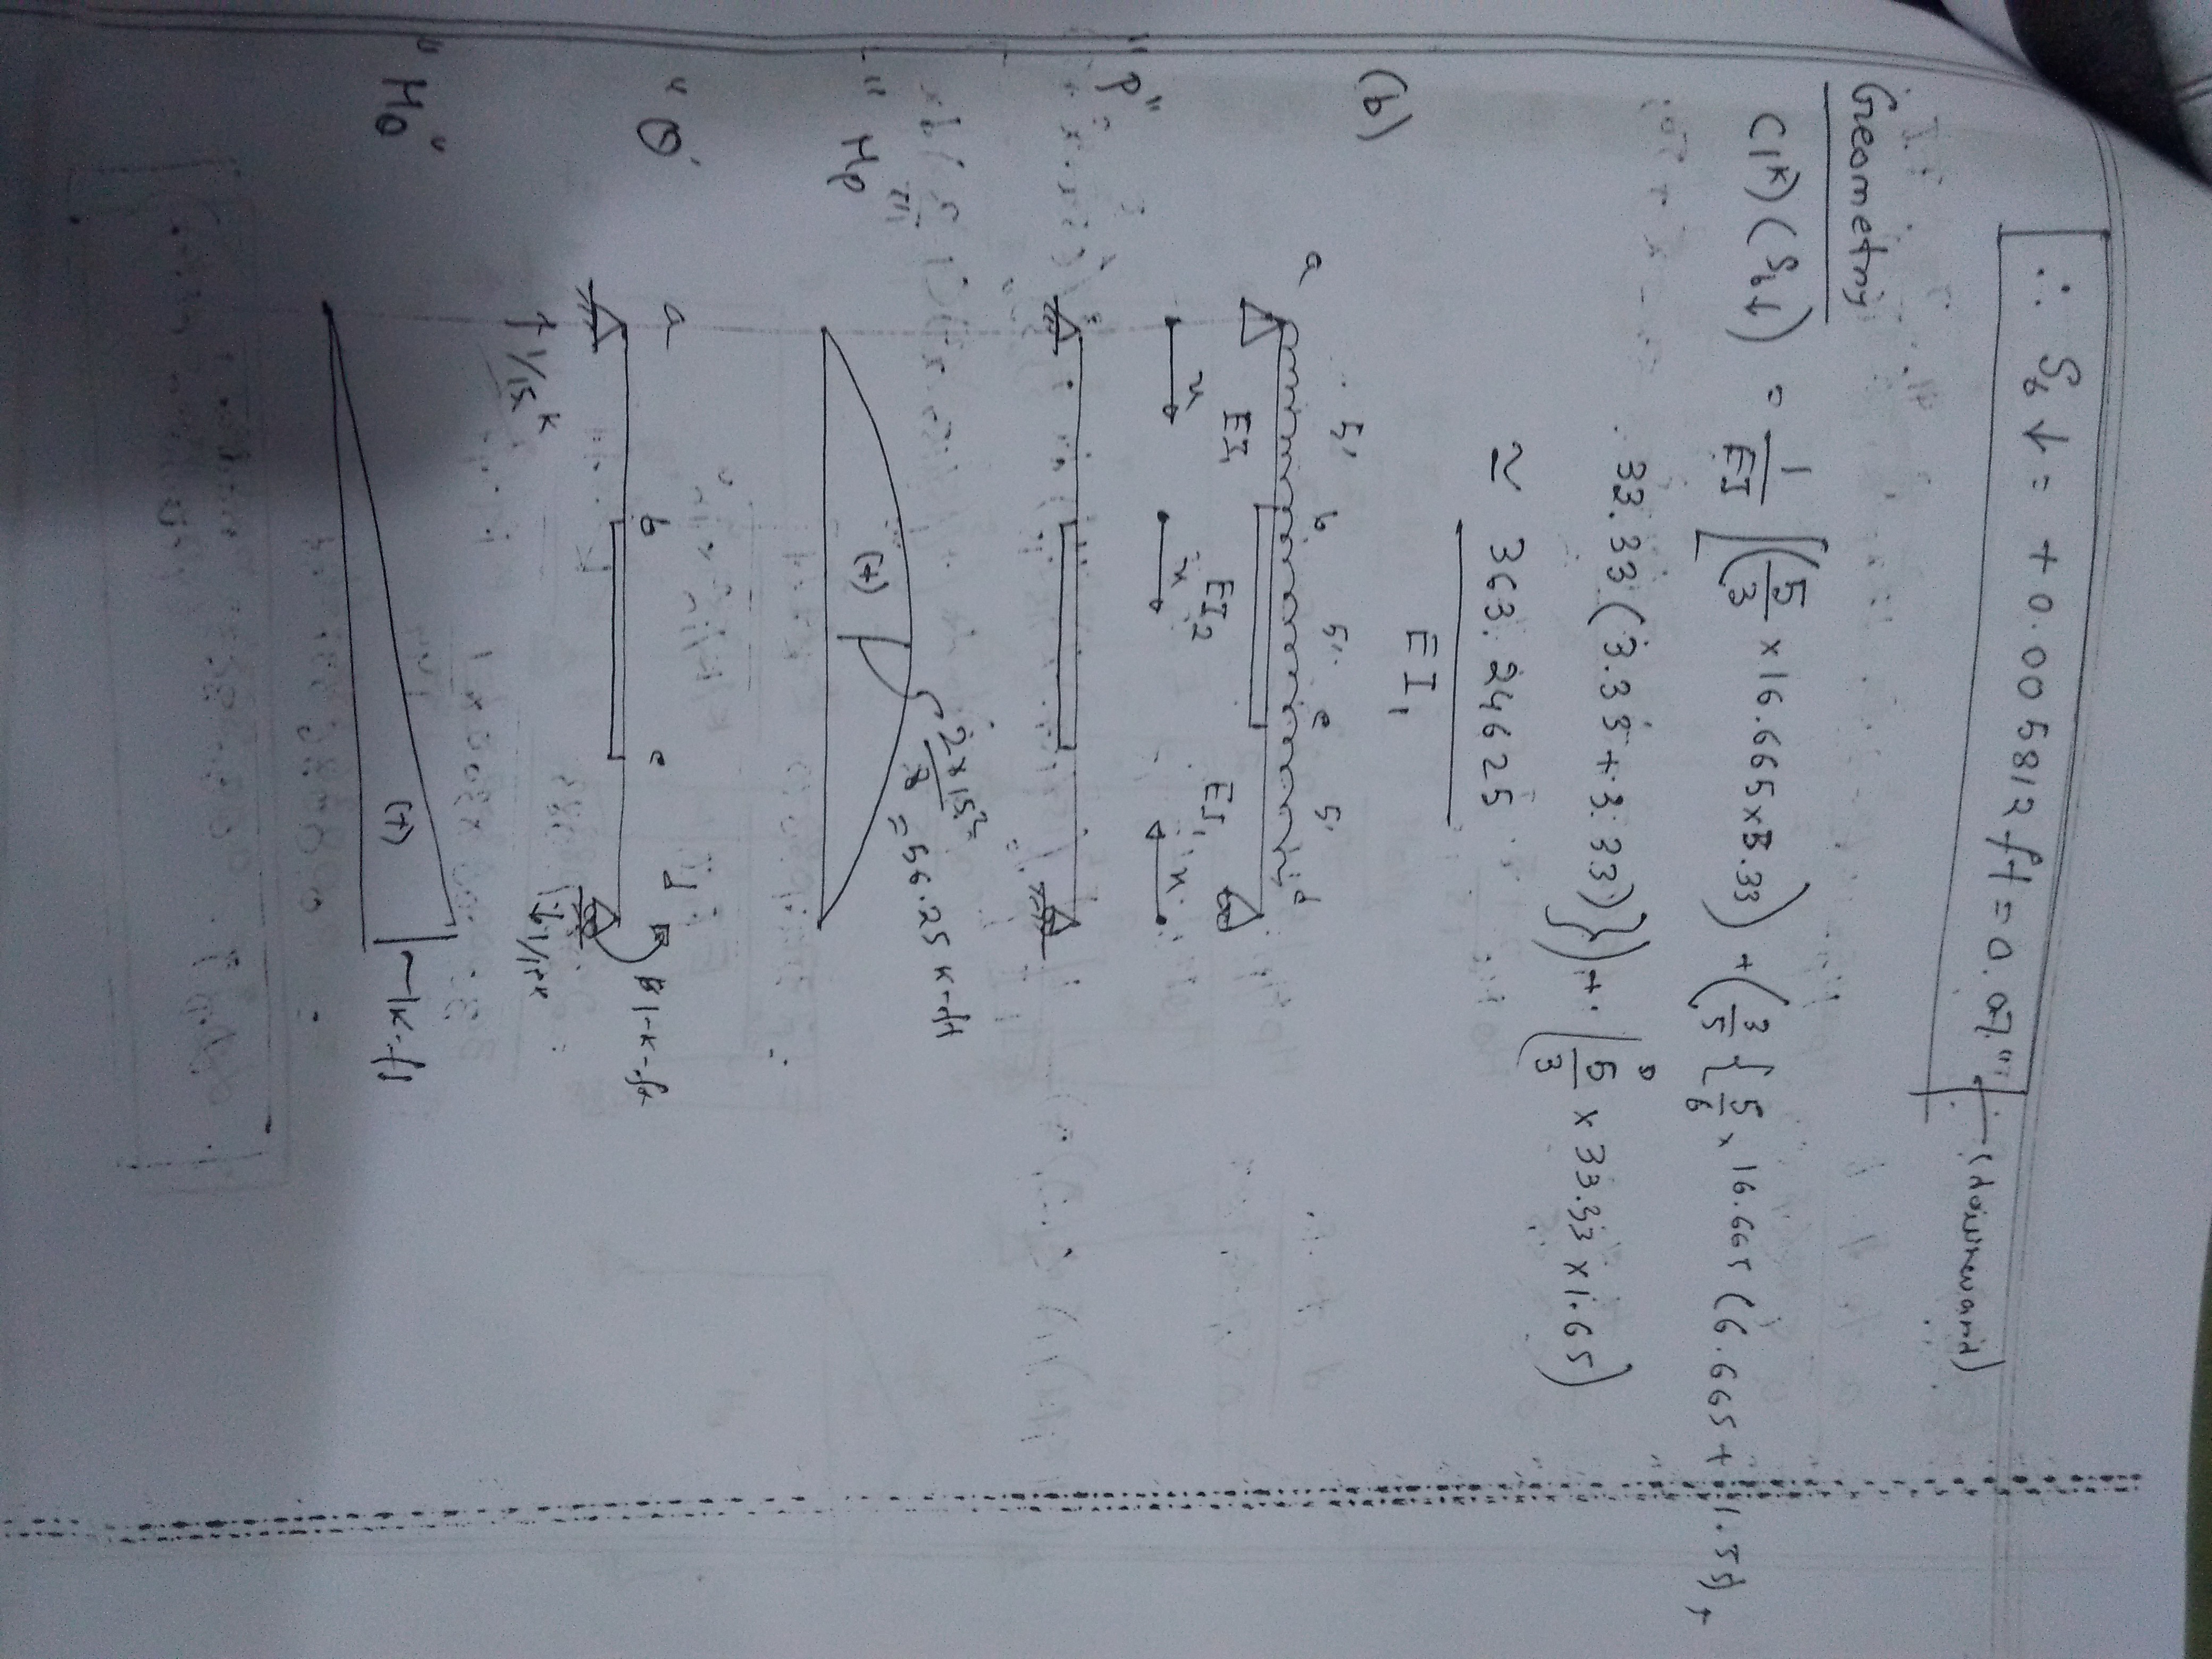 ∴ δb ↓ = + 0.005812 ft = 0.07" (downward)
Geometry
(1k) (δb↓) = 1/EI [(5/3 × 16.665 × 3.33) + (3/5 { 5/6 × 16.665 (6.665 + 1.55) +
33.33 (3.33 + 3.33)}) + (5/3 × 33.33 × 1.65)
≃ 363.24625 / EI1
(b)
a 5' b 5' c 5' d
EI1 EI2 EI1
x x x
"P"
"Mp"
(+) 2×15²/8 = 56.25 k-ft
"Q"
a b c d
1 k-ft
↑ 1/15 k ↓ 1/15 k
"MQ"
(+) 1k-ft